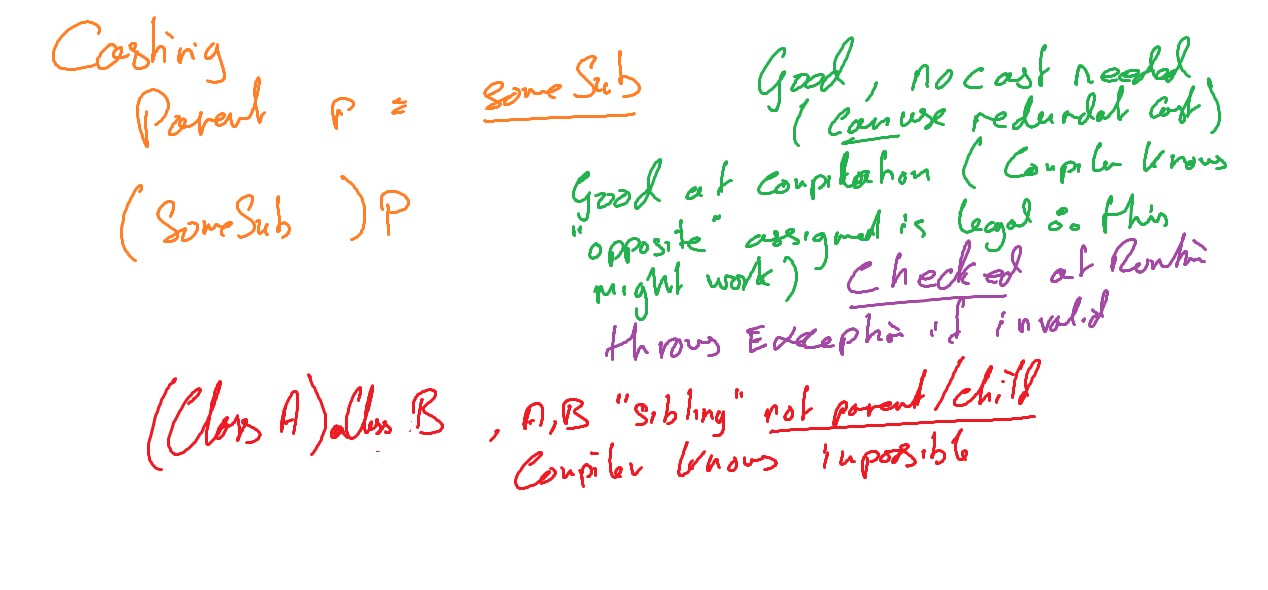 Casting
Parent P = someSub
Good, no cast needed
(can use redundat cast)
(SomeSub )P
Good at compilation (Compiler knows
"opposite" assigned is legal ∴ this
might work) Checked at Runtin
throws Exception if invalid
(Class A)aClass B , A,B "sibling" not parent/child
Compiler knows impossible